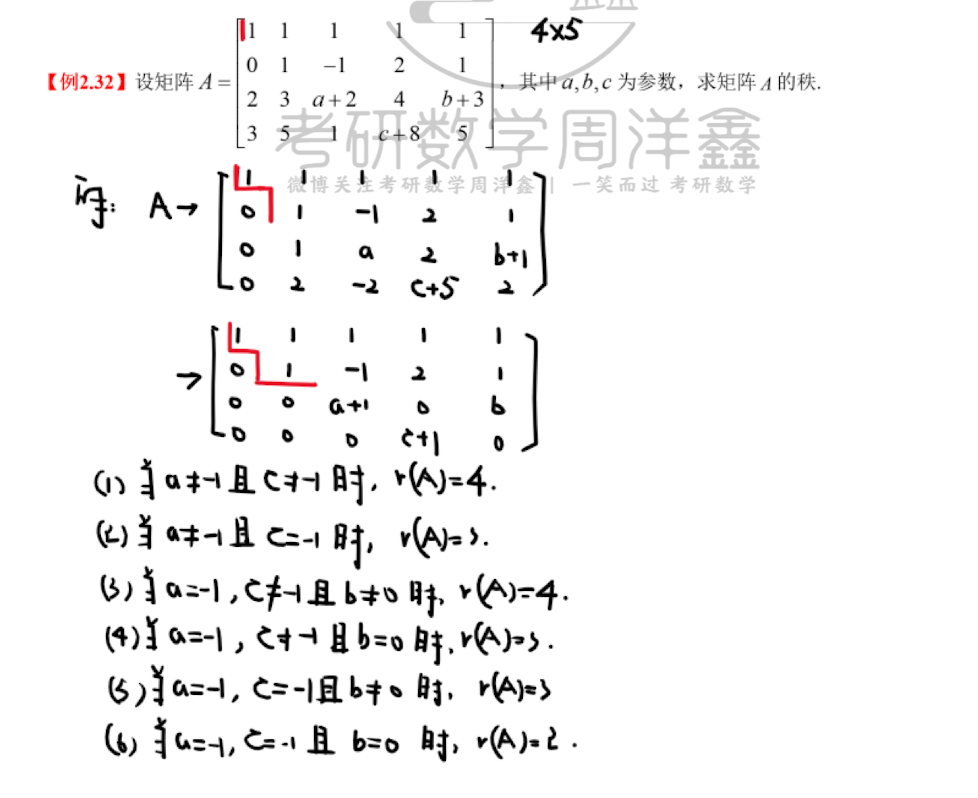 【例2.32】设矩阵 A = [1 1 1 1 1 4×5
0 1 −1 2 1
2 3 a+2 4 b+3
3 5 1 c+8 5], 其中 a,b,c 为参数，求矩阵 A 的秩.
考研数学周洋鑫
微博关注考研数学周洋鑫 | 一笑而过 考研数学
解: A→ [1 1 1 1 1
0 1 -1 2 1
0 1 a 2 b+1
0 2 -2 c+5 2]
→ [1 1 1 1 1
0 1 -1 2 1
0 0 a+1 0 b
0 0 0 c+1 0]
(1) 当 a≠-1 且 c≠-1 时, r(A)=4.
(2) 当 a≠-1 且 c=-1 时, r(A)=3.
(3) 当 a=-1, c≠-1 且 b≠0 时, r(A)=4.
(4) 当 a=-1, c≠-1 且 b=0 时, r(A)=3.
(5) 当 a=-1, c=-1 且 b≠0 时, r(A)=3
(6) 当 a=-1, c=-1 且 b=0 时, r(A)=2.